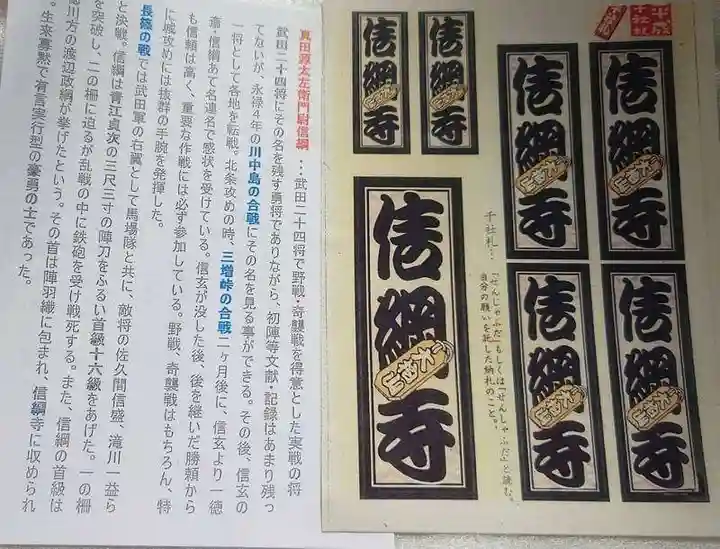 千社札
信綱寺
信綱寺
信綱寺
信綱寺
信綱寺
信綱寺
信綱寺
千社札…
「せんじゃふだ」もしくは「せんしゃふだ」と読む。
自分の願いを託した納札のこと。
真田源太左衛門尉信綱 …武田二十四将で野戦・奇襲戦を得意とした実戦の将
武田二十四将にその名を残す勇将でありながら、初陣等文献・記録はあまり残っ
てないが、永禄4年の川中島の合戦にその名を見る事ができる。その後、信玄の
一将として各地を転戦。北条攻めの時、三増峠の合戦二ヶ月後に、信玄より一徳
斎・信綱あて名連名で感状を受けている。信玄が没した後、後を継いだ勝頼から
も信頼は高く、重要な作戦には必ず参加している。野戦、奇襲戦はもちろん、特
に城攻めには抜群の手腕を発揮した。
長篠の戦では武田軍の右翼として馬場隊と共に、敵将の佐久間信盛、滝川一益ら
と決戦。信綱は青江貞次の三尺三寸の陣刀をふるい首級十六級をあげた。一の柵
を突破し、二の柵に迫るが乱戦の中に鉄砲を受け戦死する。また、信綱の首級は
徳川方の渡辺政綱が挙げたという。その首は陣羽織に包まれ、信綱寺に収められ
。生来寡黙で有言実行型の豪勇の士であった。